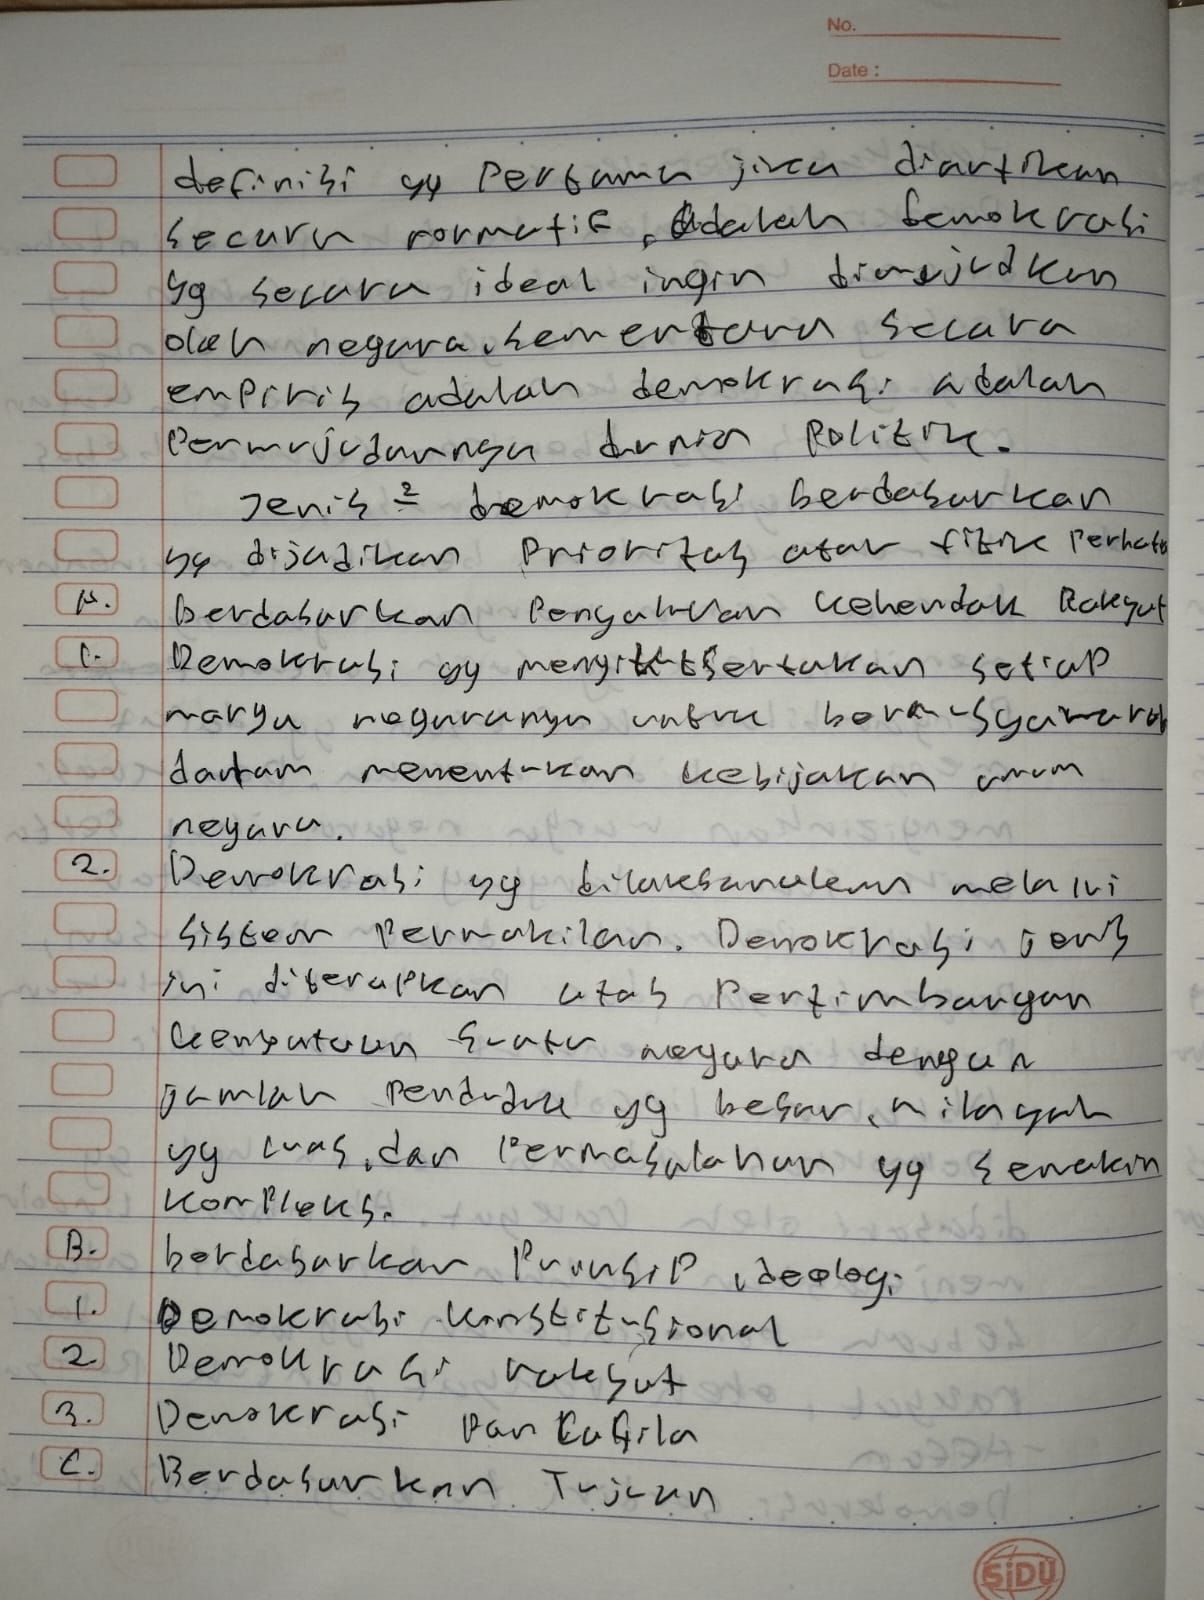 No.
Date :
definisi yg Pertama jika diartikan
secara normatif, Adalah demokrasi
yg secara ideal ingin diwujudkan
oleh negara, sementara secara
empiris adalah demokrasi adalah
Perwujudannya dunia Politik.
Jenis² demokrasi berdasarkan
yg dijadikan Prioritas atau titik Perhati
A. berdasarkan Penyaluran kehendak Rakyat
1. Demokrasi yg mengikutsertakan setiap
warga negaranya untuk bermusyawarah
dalam menentukan kebijakan umum
negara.
2. Demokrasi yg dilaksanakan melalui
sistem Perwakilan. Demokrasi jenis
ini diterapkan atas Pertimbangan
kenyataan suatu negara dengan
jumlah Penduduk yg besar, wilayah
yg luas, dan Permasalahan yg semakin
kompleks.
B. berdasarkan Prinsip ideologi
1. Demokrasi konstitusional
2. Demokrasi rakyat
3. Demokrasi Pancasila
C. Berdasarkan Tujuan
SiDU